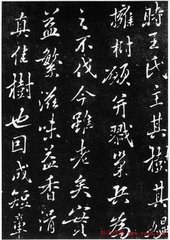 時王氏主其樹其媼
擁樹願并戮巢兵為
之不伐今雖老矣實
益繁滋味益香滑
真佳樹也因成短章